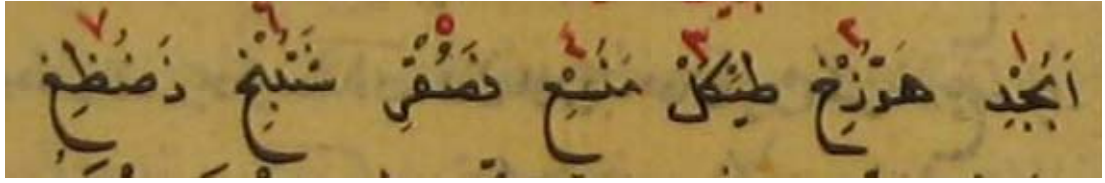 ١ ٢ ٣ ٤ ٥ ٦ ٧
اَبَجْدِ هَوَّزِحْ طَيَّكُلْ مَنَسِعْ فَصُقْرِ شَتَثِخْ ذَضُظِغْ